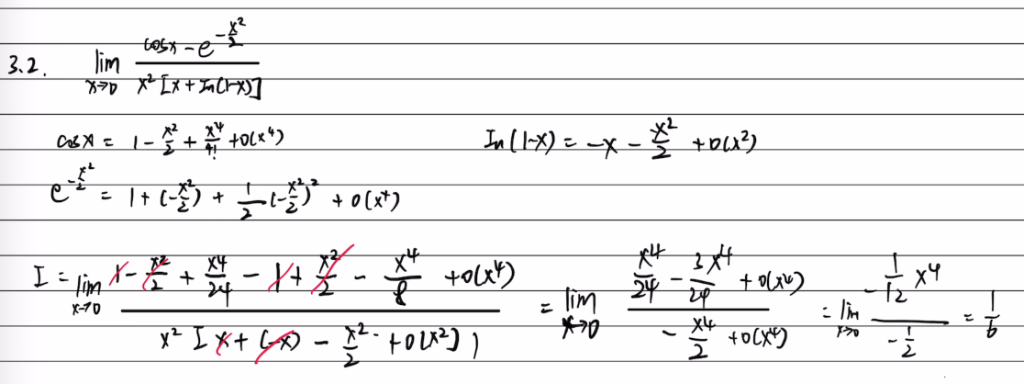 3.2. lim x→0 (cosx - e^(-x²/2)) / (x² [x + ln(1-x)])
cosx = 1 - x²/2 + x⁴/4! + o(x⁴)
ln(1-x) = -x - x²/2 + o(x²)
e^(-x²/2) = 1 + (-x²/2) + 1/2 (-x²/2)² + o(x⁴)
I = lim x→0 (1 - x²/2 + x⁴/24 - 1 + x²/2 - x⁴/8 + o(x⁴)) / (x² [x + (-x) - x²/2 + o(x²)]) = lim x→0 (x⁴/24 - 3x⁴/24 + o(x⁴)) / (-x⁴/2 + o(x⁴)) = lim x→0 (-1/12 x⁴) / (-1/2) = 1/6